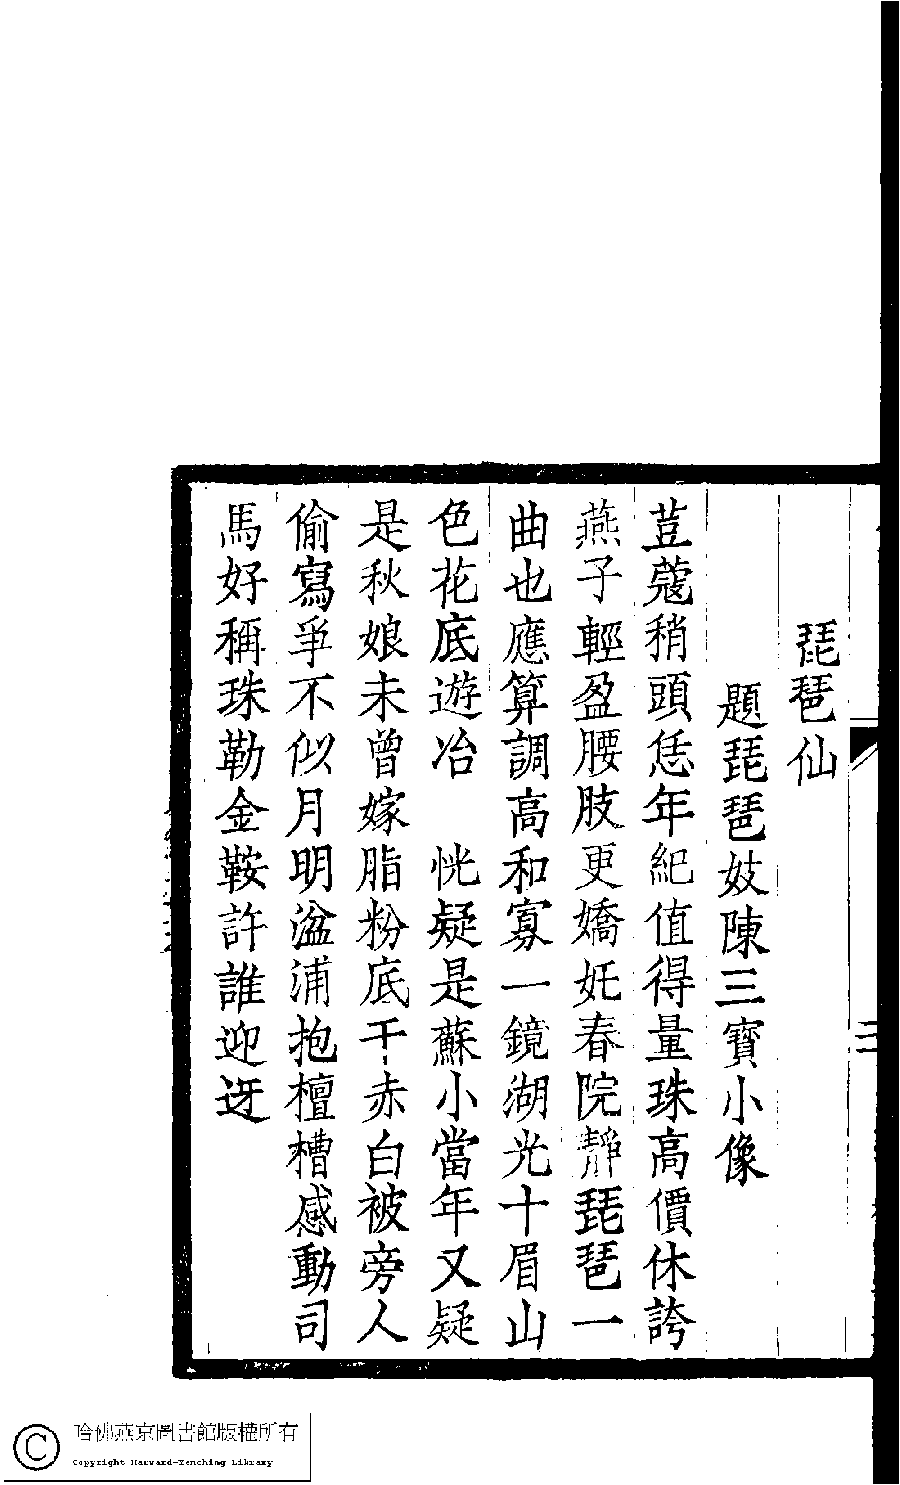 琵琶仙
題琵琶妓陳三寶小像
荳蔻稍頭恁年紀值得量珠高價休誇
燕子輕盈腰肢更嬌奼春院靜琵琶一
曲也應算調高和寡一鏡湖光十眉山
色花底遊冶　恍疑是蘇小當年又疑
是秋娘未曾嫁脂粉底干赤白被旁人
偷寫爭不似月明湓浦抱檀槽感動司
馬好稱珠勒金鞍許誰迎迓
三
哈佛燕京圖書館版權所有
Copyright Harvard-Yenching Library